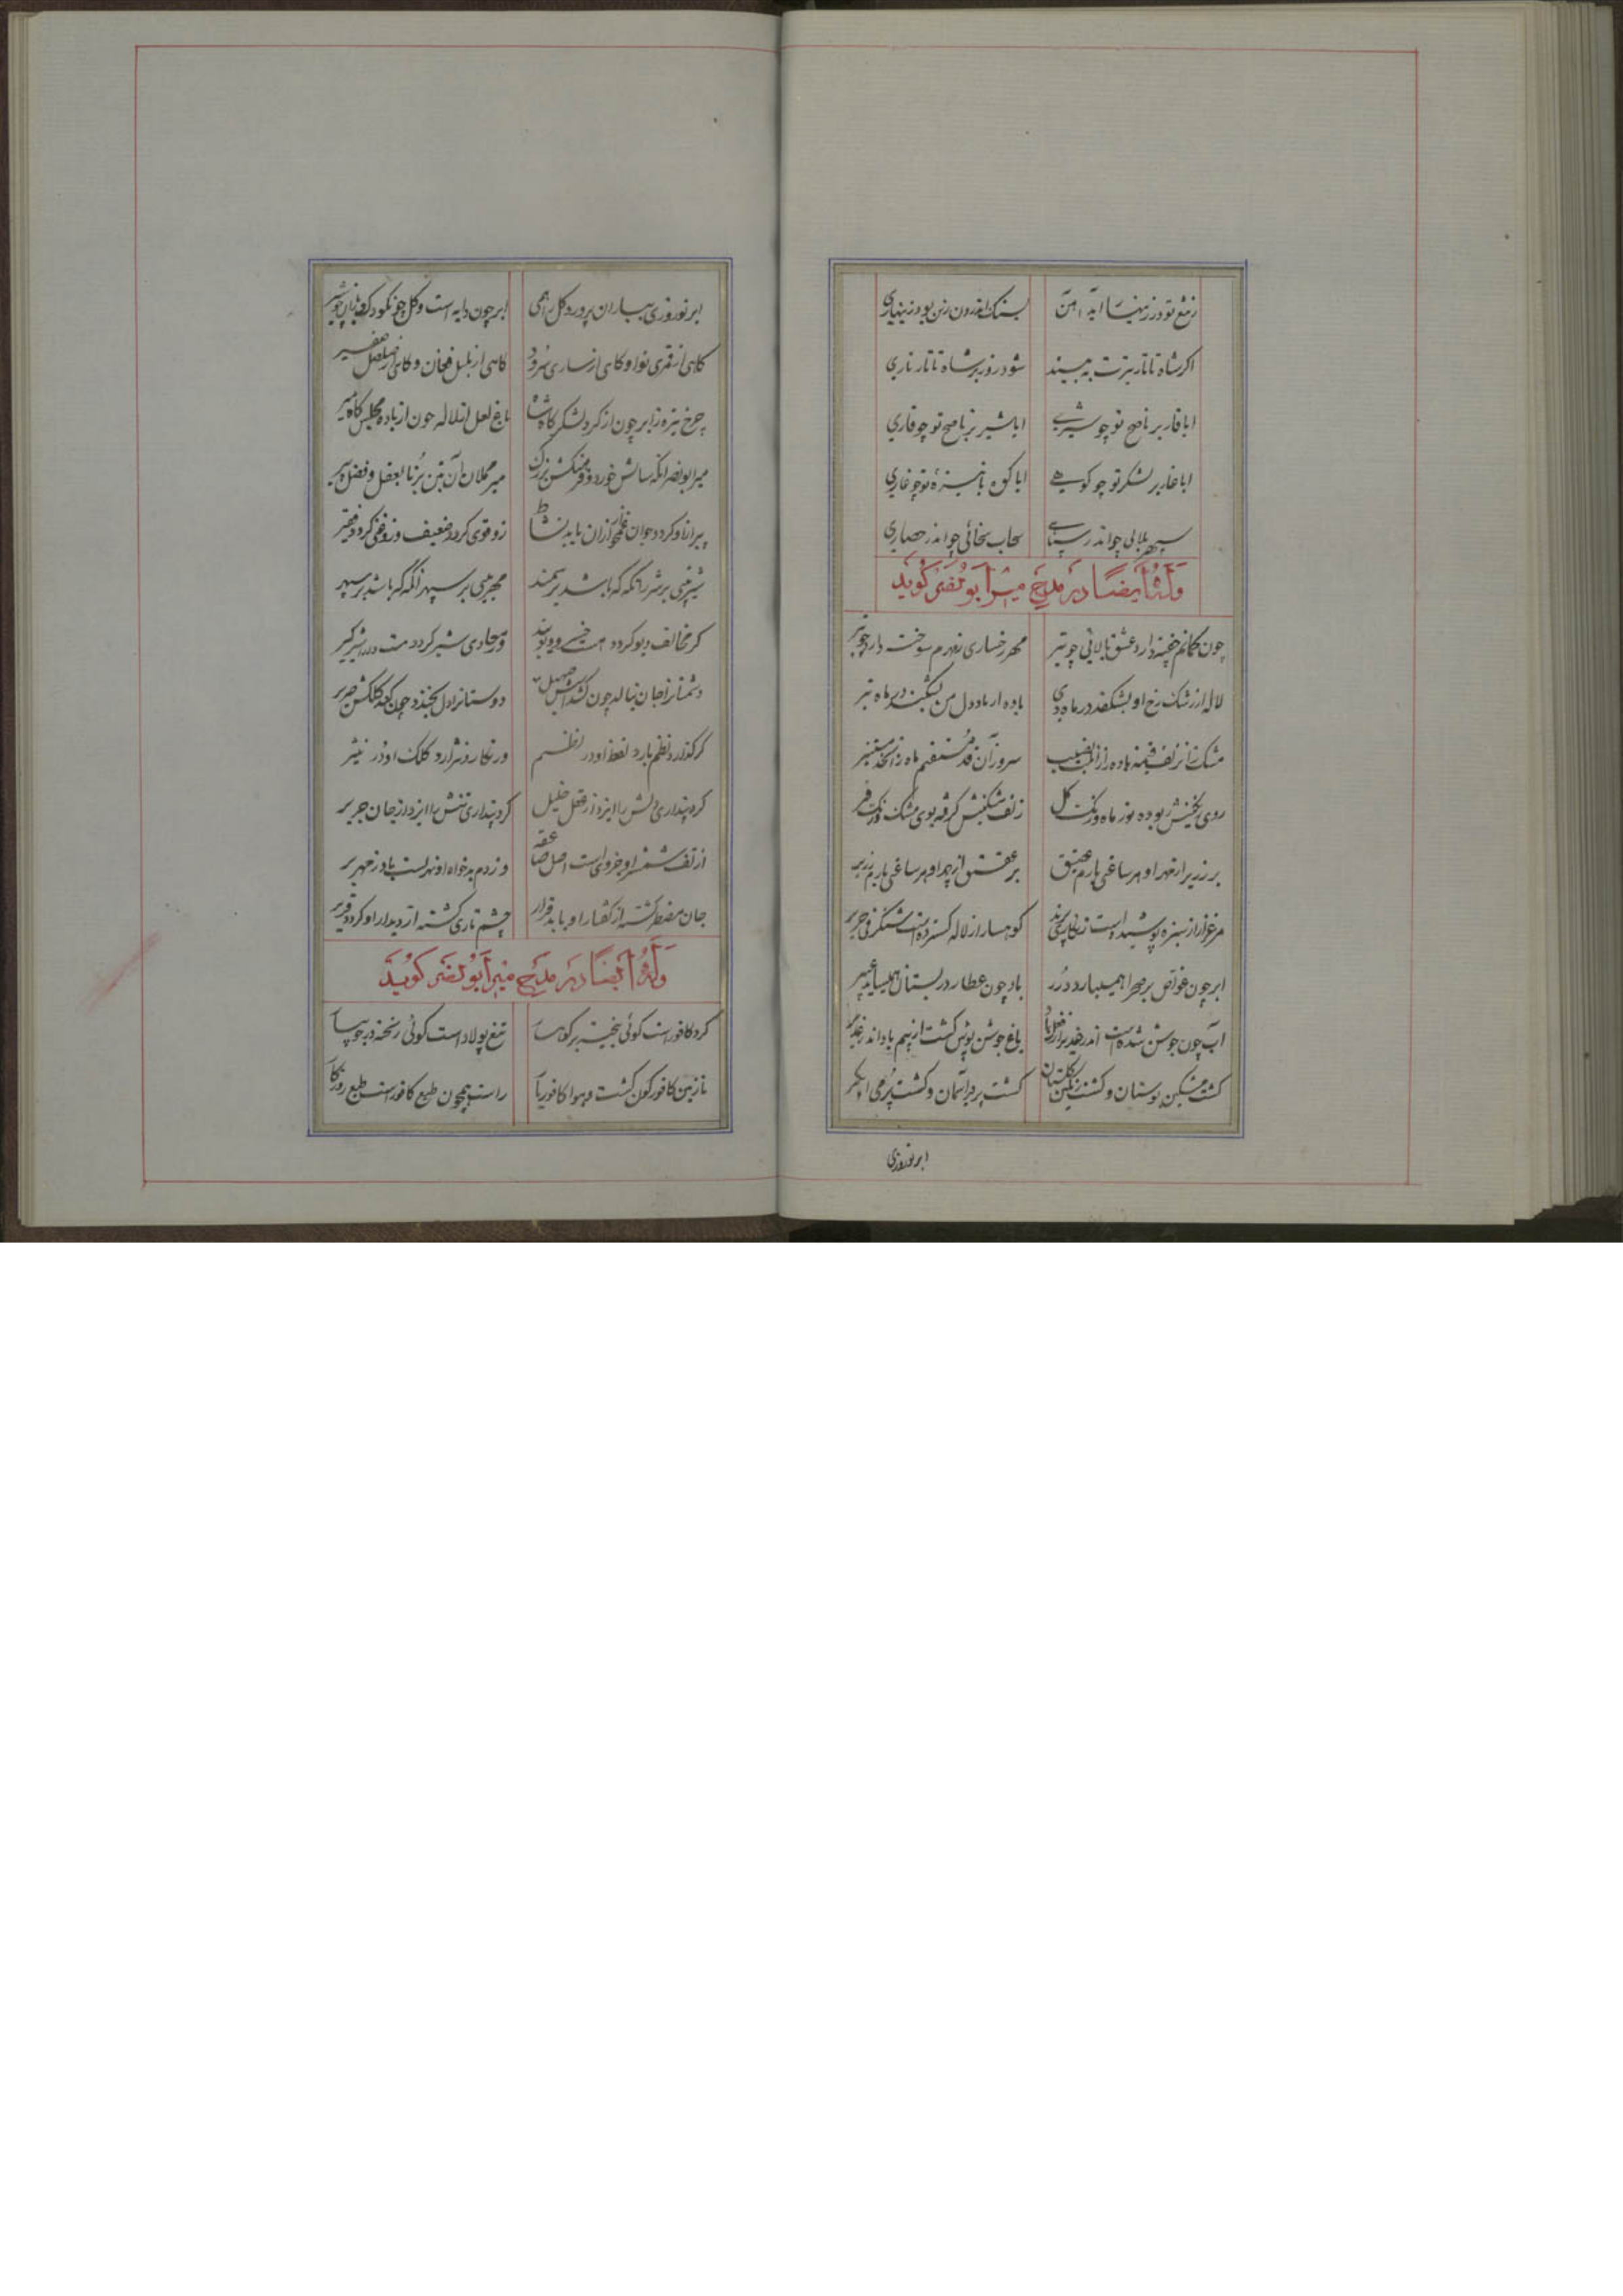 ز تیغ تو در زینهار آید آهن بسنگ اندرون زین بود زینهاری
اگر شاه تاتار تیرت به بیند شود روز بر شاه تاتار تاری
ابا قار بر ناصح تو چو شیری ابا شیر بر ناصح تو چو قاری
ابا غار بر لشکر تو چو کوهی ابا کوه با نیزهٔ تو چو غاری
سپهر بلائی چو اندر سحاب سخائی چو اندر حصاری
وله ایضا در مدح میر ابو نصر گوید
چون کمانم خفته دارد عشق بالائی چو تیر مهر رخساری زهرم سوخت دارد چو
لاله از رشک رخ او بشکفد در ماه دی باده از باد دل من بشکند در ماه تیر
مشک زان زلف ماده زان سرو زان قد مستقیم ماه زان خد مستنیر
روی ربوده نور ماه و رنگ گل زلف مشکینش گرفته بوی مشک و رنگ قیر
بر زریر از مهر او هر ساعتی بارم عقیق بر عقیق از چهر او هر ساعتی بارم زریر
مرغزار از سبزه پوشیده است زنگاری پرند کوهسار از لاله گسترده است شنگرفی حریر
ابر چون غواص بر صحرا همیبارد درر باد چون عطار در بستان همیساید عبیر
آب چون جوشن شده است اندر غدیر از باد باغ جوشن پوش گشت از بیم باد اندر غدیر
گشت مشکین بوستان و گشت رنگین گلستان گشت پر در آسمان و گشت پر می آبگیر
ابر نوروزی
ابر نوروزی بباران پرورد گل را همی ابر چون دایه است و گل چون کودک و باران چو شیر
گاهی از قمری نوا و گاهی از ساری سرود گاهی از بلبل فغان و گاهی از صلصل صفیر
چرخ تیره ز ابر چون از گرد لشکرگاه شاه باغ لعل از لاله چون از باده مجلس گاه میر
میر ابو نصر آنکه سالش خورد و فرهنگش بزرگ میر مملان آن بتن برنا بعقل و فضل پیر
پیر ازو گردد جوان غمخوار ازان یابد نشاط زو قوی گردد ضعیف و زو غنی گردد فقیر
شیر بینی بر شیر آنگه که باشد بر سمند مهر بینی بر سپهر آنگه که باشد بر سریر
گر مخالف دیو گردد هست دیو بند ور معادی شیر گردد هست شیر گیر
دشمنانرا جان بنالد چون کشد اسبش صهیل دوستانرا دل بخندد چون کند کلکش صریر
گر گذارد نظم بارد لفظ او در نظم ور نگارد نثر آرد کلک او در نثیر
کرد پنداری دلش را ایزد از عقل خلیل کرد پنداری تنش را ایزد از جان جریر
از تف شمشیر او جزوی است اصل صاعقه وز دم بدخواه او بهریست باد زمهریر
جان مضطر گشته از گفتار او یابد قرار چشم تاری گشته از دیدار او گردد قریر
وله ایضا در مدح میر ابو نصر گوید
گرد کافور است گوئی بیخته بر کوهسار تیغ پولاد است گوئی ریخته در جویبار
تا زمین کافورگون گشت و هوا کافور بار راست همچون طبع کافور است طبع روزگار